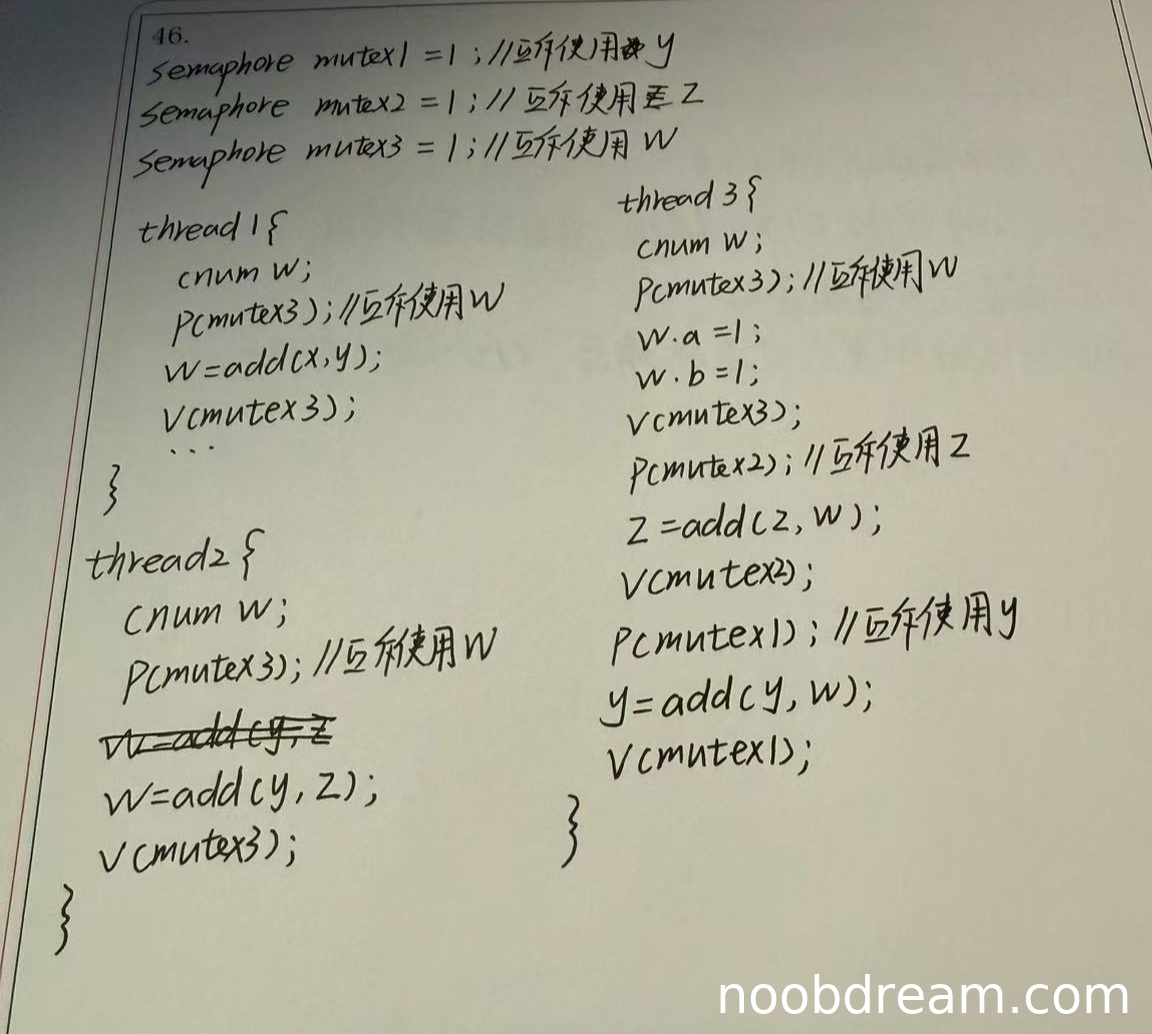 46.
semaphore mutex1 = 1 ; //互斥使用 y
semaphore mutex2 = 1; // 互斥使用 z
semaphore mutex3 = 1; //互斥使用 W
thread1{
cnum w;
P(mutex3); //互斥使用W
w=add(x,y);
V(mutex3);
...
}
thread2{
cnum w;
P(mutex3); //互斥使用W
w=add(y,z
w=add(y,z);
V(mutex3);
}
thread3{
cnum w;
P(mutex3); //互斥使用W
w.a =1;
w.b =1;
V(mutex3);
P(mutex2); //互斥使用 z
z =add(z,w);
V(mutex2);
P(mutex1); //互斥使用y
y=add(y,w);
V(mutex1);
}
noobdream.com